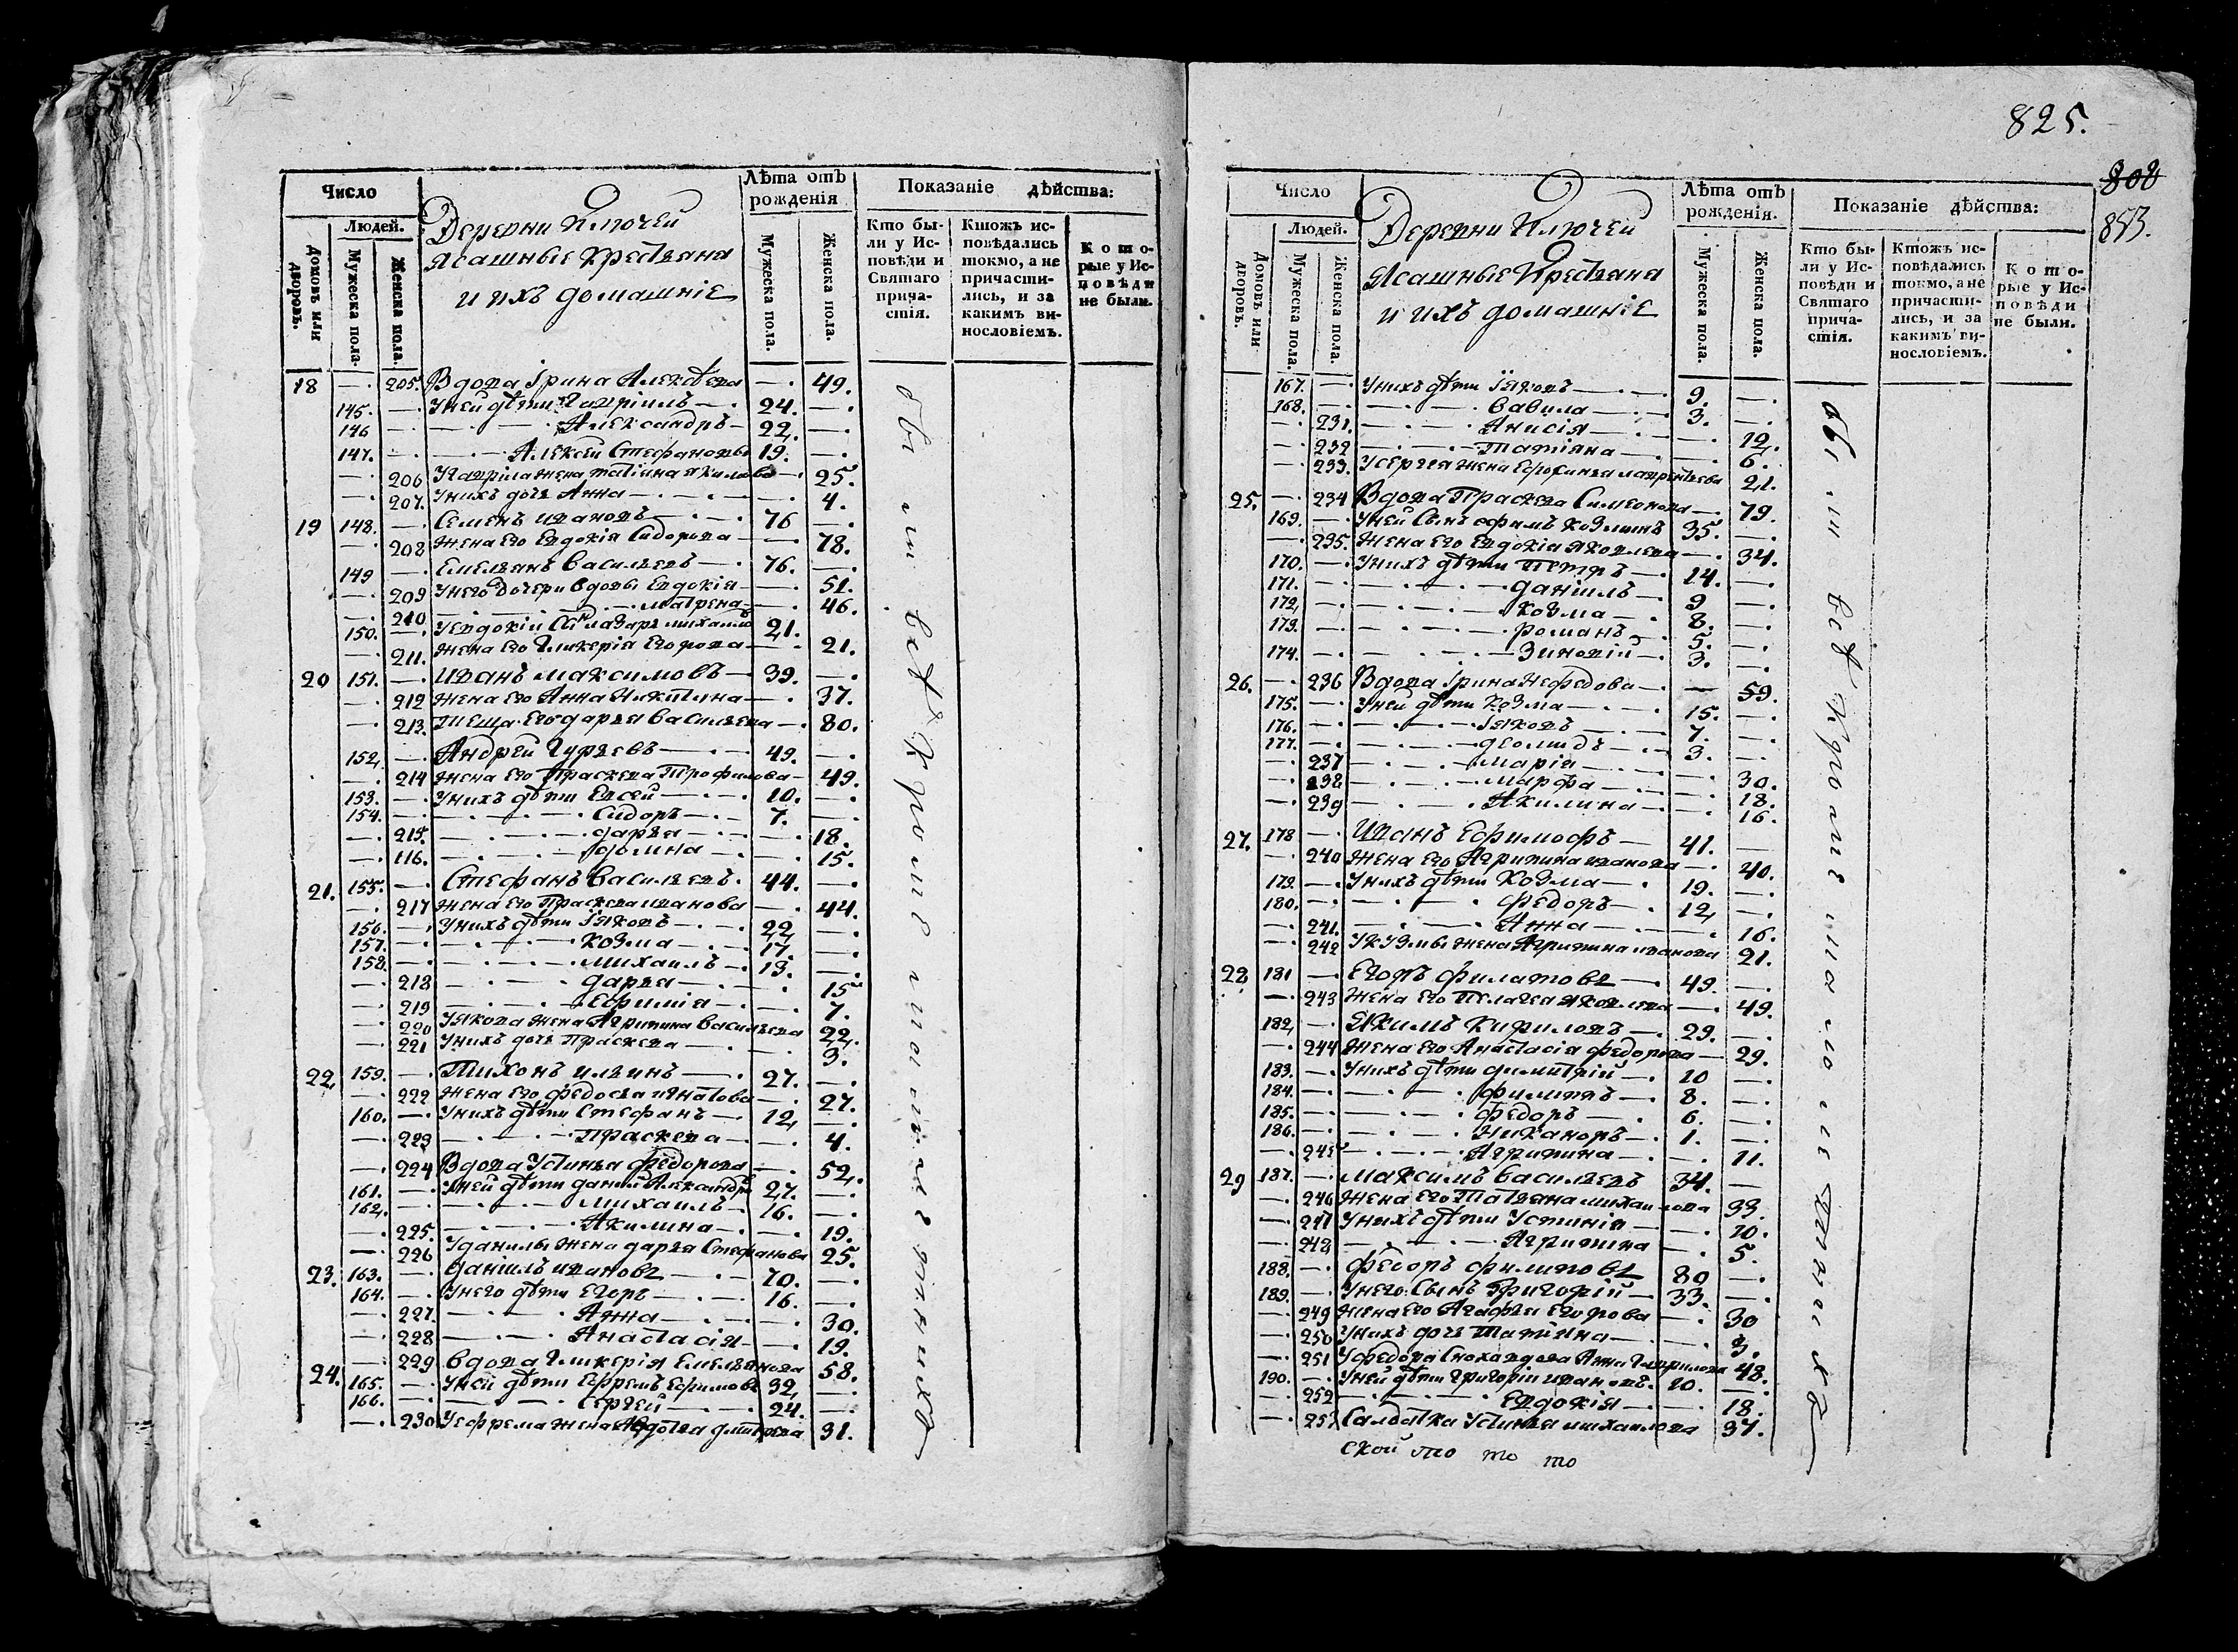 Число
Людей.
Домовъ или дворовъ.
Мужеска пола.
Женска пола.
Деревни Ключей
Ясашныя крестьяна
и ихъ домашніе
Лѣта отъ рожденія
Мужеска пола.
Женска пола.
Показаніе дѣйства:
Кто бы-
ли у Ис-
повѣди и
Святаго
прича-
стія.
Ктожъ ис-
повѣдались
токмо, а не
причасти-
лись, и за
какимъ ви-
нословіемъ.
Кото-
рые у Ис-
повѣди
не были.
18 —. 205. Вдова Ірина Алексѣева —. 49.
145. —. У ней дѣти Гаврiилъ —. 24. —.
146 —. Александръ — 22. —.
147. —. Алексѣй Стефановы 19. —.
—. 206 У Гаврила жена татiана якимова —. 25.
—. 207. У нихъ дочь Анна —. 4.
19 148. —. Семенъ ивановъ —. 76 —.
—. 208 жена его Евдокія Сидорова —. 78.
149 —. Емельянъ васильевъ —. 76. —.
—. 209 У него дочери вдовы Евдокія —. 51.
—. 210 матрена —. 46.
150. —. У Евдокіи Сынъ лазарь михаило 21. —.
—. 211. жена его Гликерія Егорова —. 21.
20 151. —. иванъ максимовъ — 39. —.
—. 212 жена его Анна никитина —. 37.
—. 213. тіеща его дарья васильева —. 80.
152. —. Андрей Гурьевъ —. 49. —.
—. 214 жена его Праскева Трофимова —. 49.
153. —. У нихъ дѣти Евсей —. 10. —.
154. —. Сидоръ —. 7. —.
—. 215. дарья —. 18.
—. 116. домна —. 15.
21. 155. —. Стефанъ васильевъ. 44. —.
—. 217 жена его Праскева иванова —. 44.
156. —. У нихъ дѣти Iяковъ —. 22 —.
157. —. козма —. 17. —.
158. —. михаилъ —. 13. —.
—. 218 дарья —. 15
—. 219 Ефимія —. 7.
—. 220 У якова жена Агрипина васильева 22.
—. 221 У нихъ дочь Праскева —. 3.
22 159. —. Тихонъ ильинъ —. 27. —.
—. 222 жена его федосья игнатова —. 27.
160. —. У нихъ дѣти Стефанъ —. 12 —.
—. 223 Праскева —. 4.
—. 224 Вдова Устинья федорова —. 52.
161. —. У ней дѣти данiил Александр 27. —.
162. —. михаилъ 16. —.
—. 225. Акилина —. 19.
—. 226 У данилы жена дарья Стефанова 25.
23. 163. —. данiилъ ивановъ —. 70. —.
164. —. У него дѣти Егоръ —. 16. —.
—. 227. Анна —. 30.
—. 228 Анастасія —. 19.
—. 229 вдова Гликерія Емельянова 58.
24. 165. —. У ней дѣти Ефремъ Ефимовъ 32 —.
166. —. Сергей —. 24. —.
—. 230 У ефрема жена Авдотья дмитрева 31.
были всѣ Кромѣ
825.
808
853.
Число
Людей.
Домовъ или дворовъ.
Мужеска пола.
Женска пола.
Деревни Ключей
Ясашныя Крестьяна
и ихъ домашніе
Лѣта отъ рожденія.
Мужеска пола.
Женска пола.
Показаніе дѣйства:
Кто бы-
ли у Ис-
повѣди и
Святаго
прича-
стія.
Ктожъ ис-
повѣдались
токмо, а не
причасти-
лись, и за
какимъ ви-
нословіемъ.
Кото-
рые у Ис-
повѣди
не были.
167. —. У нихъ дѣти Iяковъ —. 9. —.
168. —. вавила —. 3. —.
—. 231. Анисія —. 12.
—. 232 татіяна —. 6.
—. 233. У сергея жена Ефросинья лаврентьева 21.
25. —. 234 Вдова Праскева Симеонова —. 79.
169. —. У ней Сынъ ефимъ козминъ 35. —.
—. 235. жена его Евдокія яковлева —. 34.
170. —. У нихъ дѣти Петръ —. 14. —.
171. —. данiилъ —. 9 —.
172 —. козма —. 8. —.
173. —. романъ —. 5. —.
174. —. Зиновій —. 3. —.
26. —. 236 Вдова Ірина Нефедова —. — 59.
175. —. У ней дѣти козма —. 15. —.
176. —. Iяковъ —. 7. —.
177. —. деомидъ —. 3. —.
—. 237 марія —. 30.
—. 238 марфа —. 18.
—. 239 Акилина —. 16.
27. 178 —. Иванъ Ефимофъ — 41. —
—. 240 жена его Агрипина иванова —. 40.
179. —. У нихъ дѣти Козма —. 19. —.
180. —. Федоръ —. 12 —.
—. 241. Анна —. 16.
—. 242 У кузмы жена Агрипина иванова 21.
28 181 —. Егоръ филатовъ —. 49. —.
—. 243 жена его Пелагея яковлева —. 49.
182 —. Якимъ Кириловъ —. 29. —.
—. 244 жена его Анастасія федорова — 29.
183. —. У нихъ дѣти димитрій —. 10 —.
184. —. филипъ —. 8. —.
185. —. федоръ —. 6. —.
186. —. Никаноръ —. 1. —.
—. 245 Агрипина —. 11.
29 187. —. максимъ васильевъ 34. —
—. 246 жена его Татьяна михаилова 33.
—. 247 У нихъ дѣти Устинія —. 10.
—. 248 Агрипина —. 5.
188. —. федоръ филиповъ 80 —.
189. —. У него Сынъ Григорій —. 33. —.
—. 249 жена его Агафья Егорова —. 30
—. 250 У нихъ дочь татіяна —. 3.
—. 251 У федора Сноха вдова Анна Гаврилова 48.
190. —. У ней дѣти григорій ивановъ. 20. —.
—. 252 Евдокія —. 18.
—. 253 Салдатка Устинья михаилова 37.
ской то то то
были всѣ Кромѣ